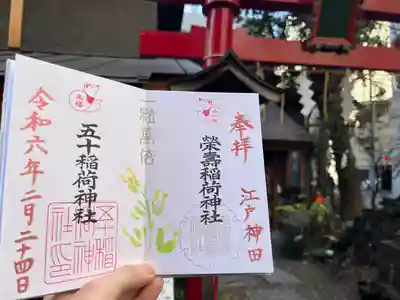 奉拝
江戸神田
榮壽稲荷神社
一粒萬倍
五十稲荷神社
令和六年二月二十四日